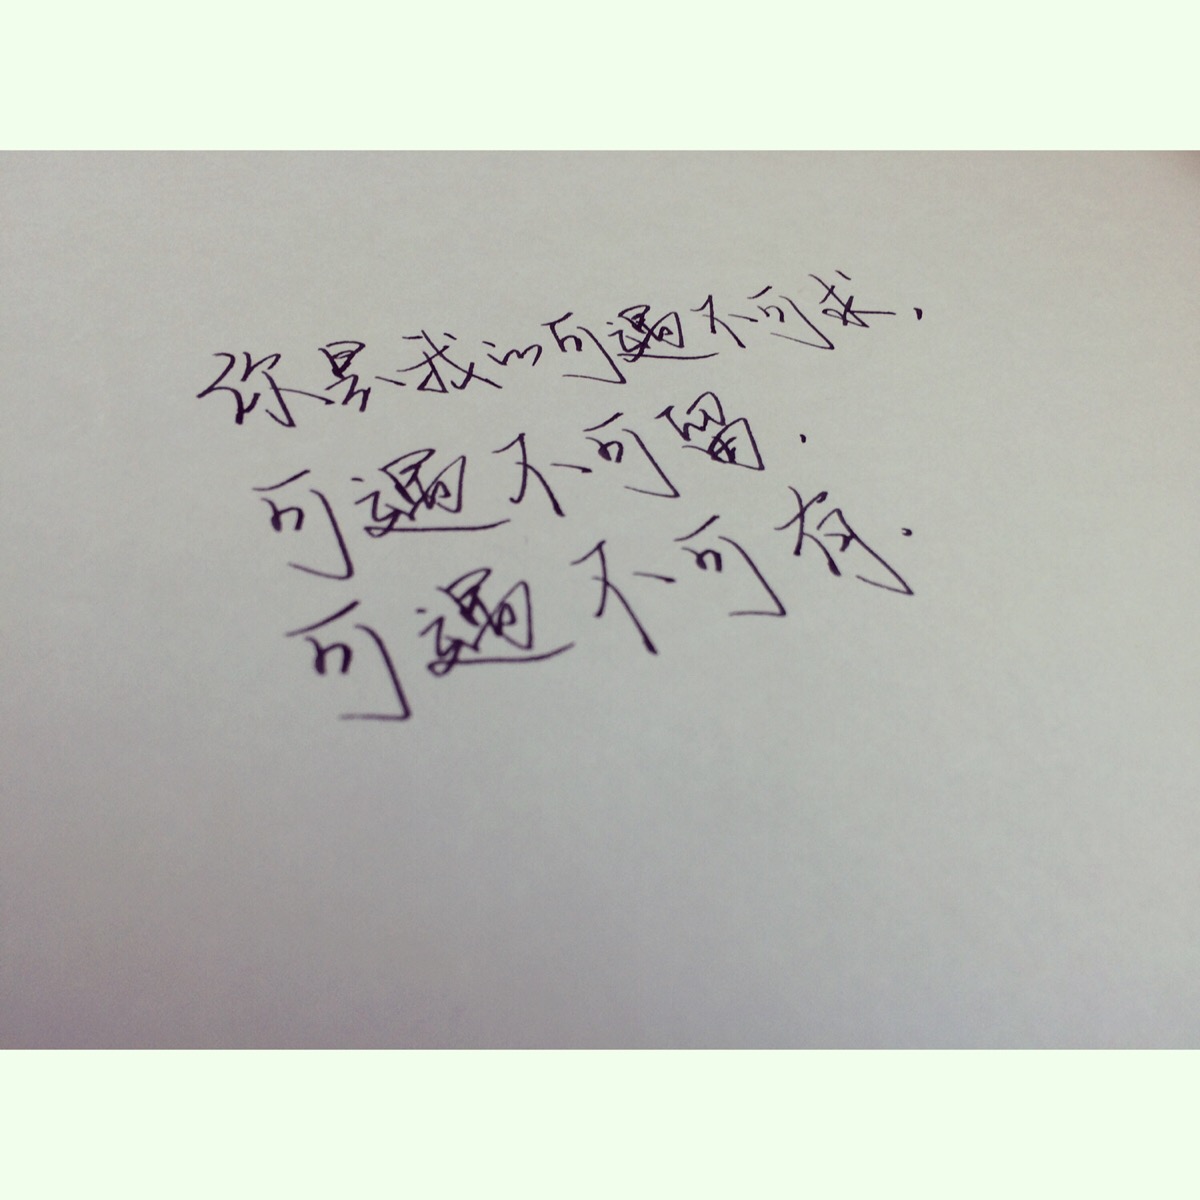 你是我的可遇不可求，
可遇不可留．
可遇不可有．